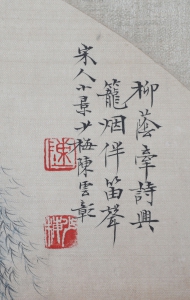 柳蔭牽詩興
籠烟伴笛聲
宋人小景少梅陳雲彰
陳
少梅